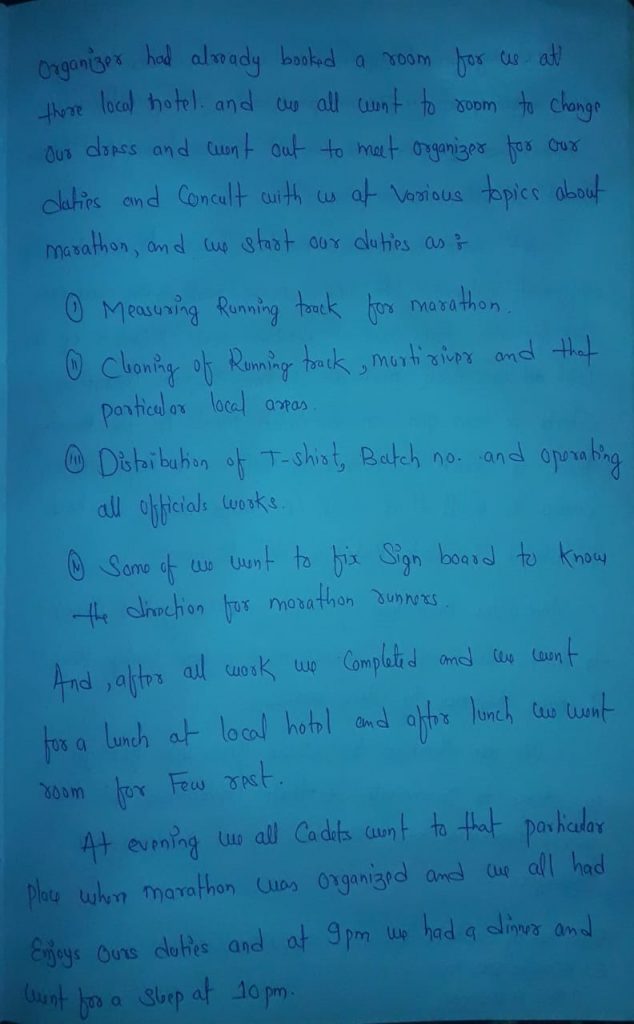 Organizer had already booked a room for us at
there local hotel. and we all went to room to change
our dress and went out to meet organizer for our
duties and Concult with us at Various topics about
marathon, and we start our duties as :
(I) Measuring Running track for marathon.
(II) Cleaning of Running track, murti river and that
particular local areas.
(III) Distribution of T-shirt, Batch no. and operating
all officials works.
(IV) Some of us went to fix Sign board to know
the direction for marathon runners.
And, after all work we Completed and we went
for a lunch at local hotel and after lunch we went
room for Few rest.
At evening we all Cadets went to that particular
place when marathon was organized and we all had
Enjoys ours duties and at 9pm we had a dinner and
went for a sleep at 10pm.